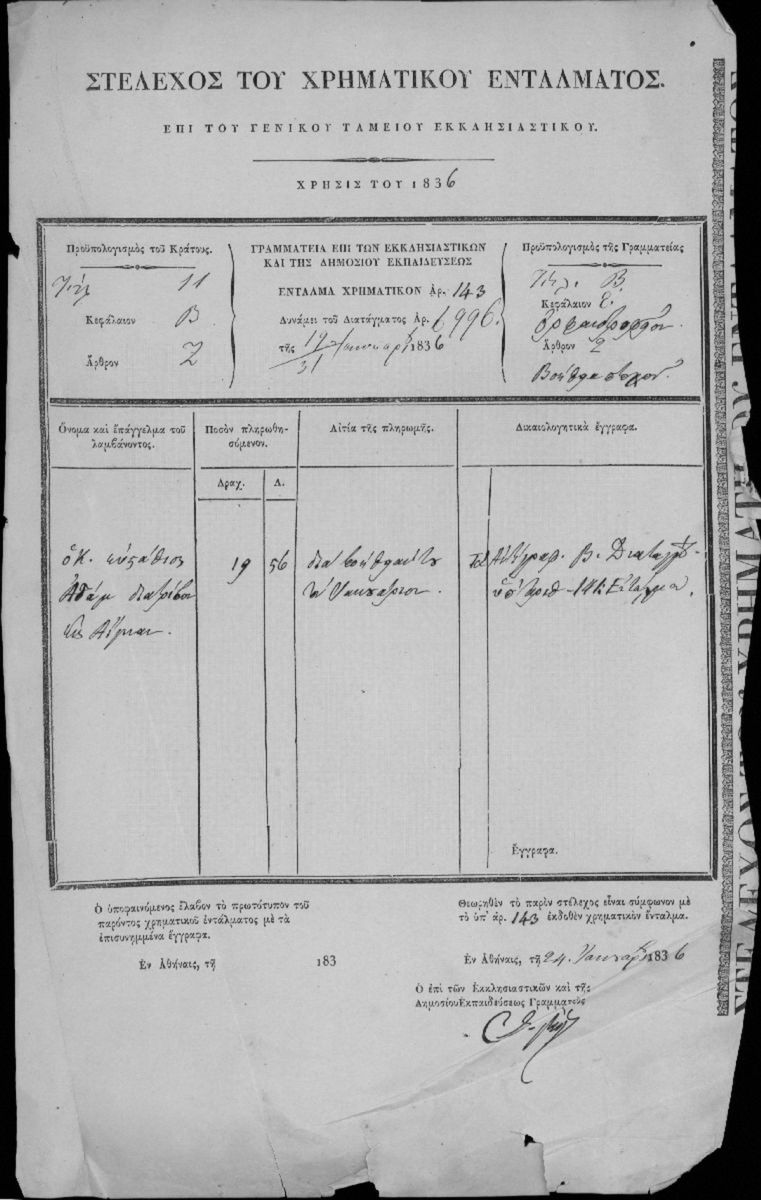 ΣΤΕΛΕΧΟΣ ΤΟΥ ΧΡΗΜΑΤΙΚΟΥ ΕΝΤΑΛΜΑΤΟΣ.
ΕΠΙ ΤΟΥ ΓΕΝΙΚΟΥ ΤΑΜΕΙΟΥ ΕΚΚΛΗΣΙΑΣΤΙΚΟΥ.
ΧΡΗΣΙΣ ΤΟΥ 1836
Προϋπολογισμὸς τοῦ Κράτους.
Τίτλ 11
Κεφάλαιον Β
Ἄρθρον 2
ΓΡΑΜΜΑΤΕΙΑ ΕΠΙ ΤΩΝ ΕΚΚΛΗΣΙΑΣΤΙΚΩΝ
ΚΑΙ ΤΗΣ ΔΗΜΟΣΙΟΥ ΕΚΠΑΙΔΕΥΣΕΩΣ
ΕΝΤΑΛΜΑ ΧΡΗΜΑΤΙΚΟΝ Ἀρ. 143
Δυνάμει τοῦ Διατάγματος Ἀρ. 6996.
τῆς 19/31 Ἰανουαρ 1836
Προϋπολογισμὸς τῆς Γραμματείας
Τίτλ. Β.
Κεφάλαιον Ε.
Ὀρφανοτροφῖον.
Ἄρθρον 2
Ὄνομα καὶ ἐπάγγελμα τοῦ
λαμβάνοντος.
Ποσὸν πληρωθη-
σόμενον.
Αἰτία τῆς πληρωμῆς.
Δικαιολογητικὰ ἔγγραφα.
Δραχ.
Λ.
ὁ Κ. Εὐστάθιος
Ἀδάμ διατρίβων
εἰς Αἴγιναν.
19
56
διὰ
τὸν Ἰανουάριον.
Β. Διαταγ
Ἔγγραφα.
Ὁ ὑποφαινόμενος ἔλαβον τὸ πρωτότυπον τοῦ
παρόντος χρηματικοῦ ἐντάλματος μὲ τὰ
ἐπισυνημμένα ἔγγραφα.
Ἐν Ἀθήναις, τῇ 183
Θεωρηθὲν τὸ παρὸν στέλεχος εἶναι σύμφωνον μὲ
τὸ ὑπ' ἀρ. 143 ἐκδοθὲν χρηματικὸν ἔνταλμα.
Ἐν Ἀθήναις, τῇ 24 Ἰανουαρ 1836
Ὁ ἐπὶ τῶν Ἐκκλησιαστικῶν καὶ τῆς
Δημοσίου Ἐκπαιδεύσεως Γραμματεὺς